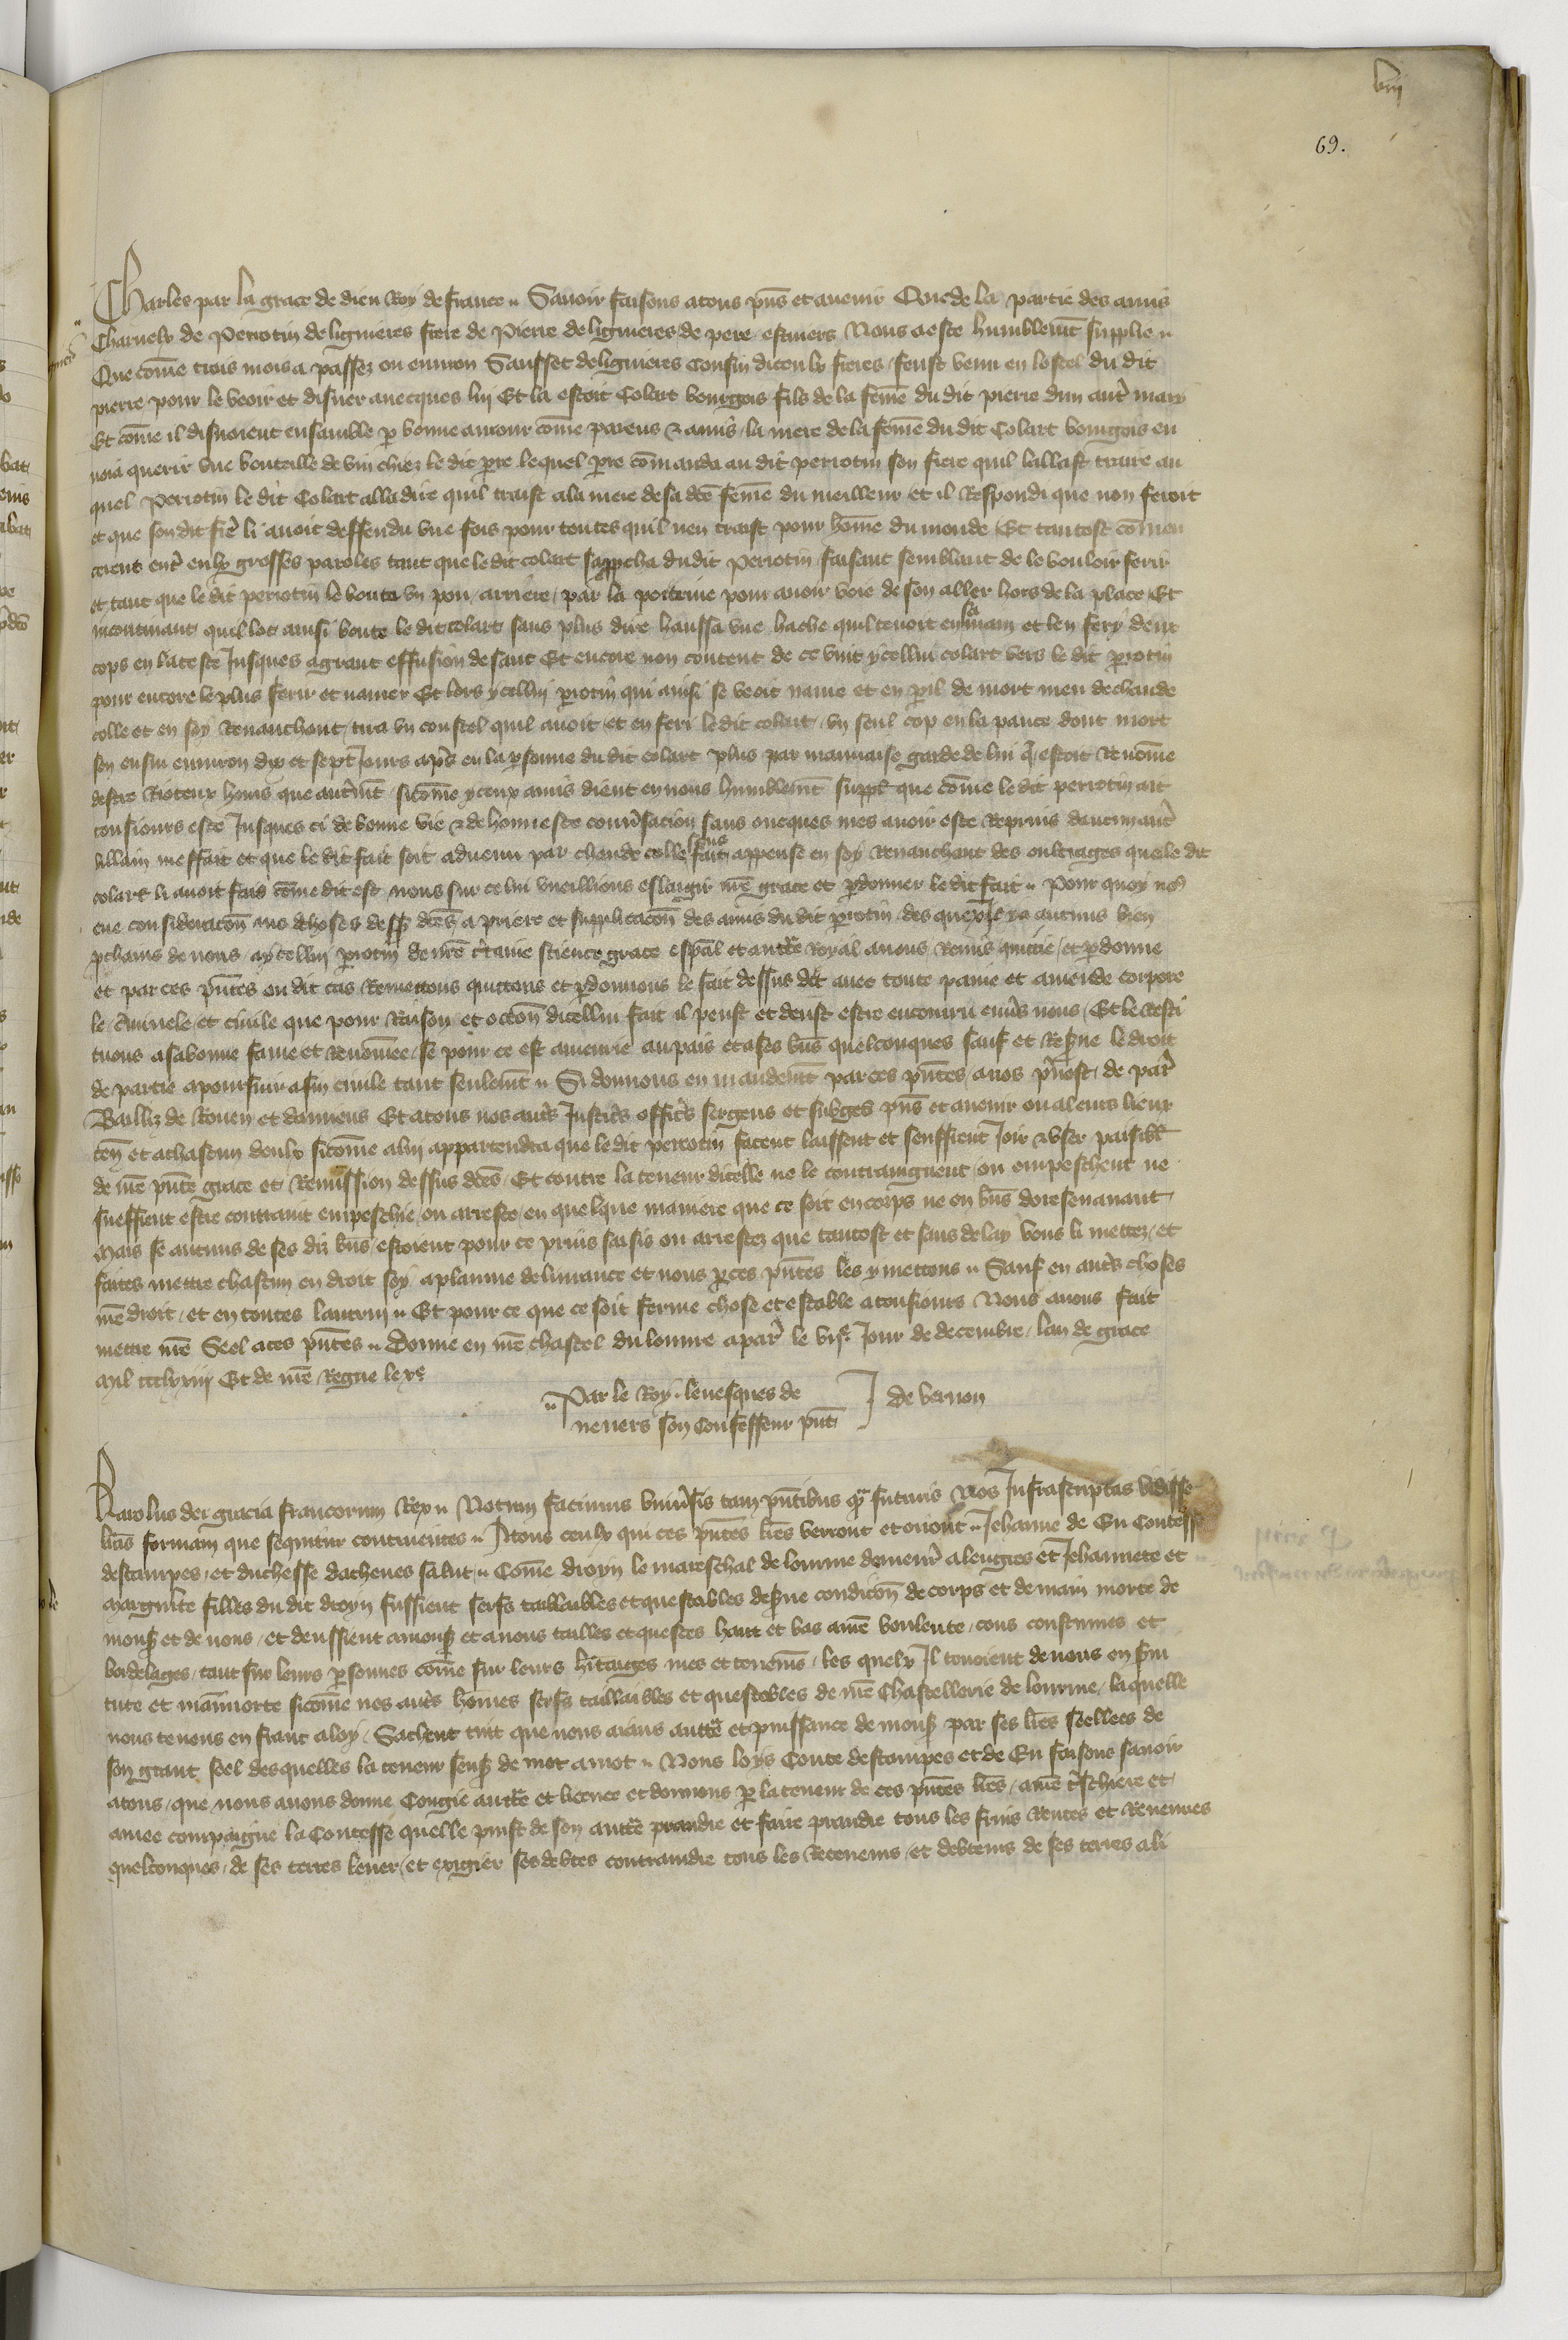 lxix
69.
Charles par la grace de dieu Roy de france .. Savoir faisons a tous pns et avenir Que de la partie des amis
Charnelx de Perrotin de lignieres frere de Pierre de lignieres de pere Nous a este humblemt supplie ..
Que come trois mois a passez ou environ Sausset de lignieres Cousin diceulx freres feust venu en lostel du dit
pierre pour le veoir et disner avecques lui Et la estoit Colart bourgois filz de la feme du dit pierre dun autr mary
Et come il disnoient ensamble p bonne amour come parens & amis la mere de la feme du dit Colart bourgois en
voia querir une bouteille de vin chiez le dit pre lequel pre comanda au dit perrotin son frere quil lallast traire au
quel Perrotin le dit Colart alla dire quil traist a la mere de sa dce feme du meilleur et il Respondi que non feroit
et que son dit frer li avoit deffendu une fois pour toutes quil nen traist pour home du monde Et tantost comen
cerent entr eulx grosses paroles tant que le dit colart sapprcha du dit Perrotin faisant semblant de le vouloir ferir
et tant que le dit perrotin le bouta un pou arriere par la poitrine pour avoir voie de son aller hors de la place Et
incontinant quil lot ainsi boute le dit colart sans plus dire haussa une hache quil tenoit en sa main et len fery deux
cops en la teste Jusques a grant effusion de sanc Et encore non content de ce vint ycellui colart vers le dit protin
pour encore le plus ferir et navrer Et lors ycellui protin qui ainsi se veoit navre et en pril de mort meu de chaude
colle et en soy Revanchant tira un coustel quil avoit et en feri le dit colart un seul cop en la pance dont mort
sen ensui environ dix et sept Jours aps en la psonne du dit colart plus par mauvaise garde de lui q estoit Renome
destre Rioteur homs que autrmt sicome yceux amis dient en nous humblemt suppl que come le dit perrotin ait
tousiours este Jusques ci de bonne vie & de honneste convsacion sans oncques mes avoir este Reprins daucun autr
villain meffait et que le dit fait soit advenu par chaude colle sans fait appense en soy Revanchant des oultrages que le dit
colart li avoit fais come dit est nous sur ce lui vueillions eslargir nre grace et pdonner le dit fait .. Pour quoy nos
eue consideracon aus choses dess dces a priere et supplicacon des amis du dit protin des quex Il y a aucuns bien
pchains de nous a ycellui protin de nre crtaine science grace espal et auctte Royal avons Remis quictie et pdonne
et par ces pntes ou dit cas Remettons quittons et pdonnons le fait dessus dit avec toute paine et amende corpore
le crminele et civile que pour Raison et occon dicellui fait il peust et deust estre encouru envs nous Et le Resti
tuons a sa bonne fame et Renomee se pour ce est amenrie au pais et a ses bns quelconques sauf et Resve le droit
de partie a poursuir a fin civile tant seulemt .. Si donnons en mandemt par ces pntes a nos prvost de par
Bailliz de Rouen et damiens Et a tous nos autrs Justicrs officrs sergens et subges pns et avenir ou a leurs lieux
ten et a chascun deulx sicome a lui appartendra que le dit perrotin facent laissent et seuffrent Joir & user paisibl
de nre pnte grace et Remission dessus dces Et contre la teneur dicelle ne le contraingnent ou empeschent ne
sueffrent estre contraint empeschie ou arreste en quelque maniere que ce soit en corps ne en bns doresenavant
Mais se aucuns de ses diz bns estoient pour ce prins saisis ou arrestez que tantost et sans delay vous li mettez et
faites mettre chascun en droit soy a plaine delivrance et nous p ces pntes les y mettons .. Sauf en autrs choses
nre droit et en toutes lautruy .. Et pour ce que ce soit ferme chose et estable a tousiours Nous avons fait
mettre nre Seel a ces pntes .. Donne en nre chastel du louvre a par le vije Jour de decembre lan de grace
Mil ccclxxiij Et de nre Regne le xe
.. Par le Roy levesques de
nevers son Confesseur pnt
de vernon
Karolus dei gracia francorum Rex .. Notum facimus univsis tam pntibus q futuris Nos Infrascriptas vidisse
lras formam que sequitur continentes .. A tous ceulx qui ces pntes lres verront et orront .. Jehanne de Eu Contesse
destampes et duchesse dathenes salut .. Come droyn le mareschal de lourme demeur a leugres et Jehannete et
Margurite filles du dit droyn fussient serfs taillables et questables desve condicon de corps et de main morte de
mons et de nous et deussient a mons et a nous tailles et questes haut et bas a nre voulente cens coustumes et
bordelages tant sur leurs psonnes come sur leurs hitages mes et tenems les quelx Il tenoient de nous en svi
tute et mainmorte sicome nos autrs homes serfs taillables et questables de nre Chastellerie de lourme laquelle
nous tenons en franc aloy Sachent tuit que nous aians auttte et puissance de mons par ses lres seellees de
son grant seel desquelles la teneur sensuit de mot a mot .. Nous loys Conte destampes et de Eu faisons savoir
a tous que nous avons donne Congie auttte et licence et donnons p la teneur de ces pntes lres a nre trschiere et
amee compaigne la Contesse quelle puist de son auttte prandre et faire prandre tous les fruis Rentes et Revenues
quelconques de ses terres lever et exigier ses debtes contraindre tous les Recevens et debteurs de ses terres ali